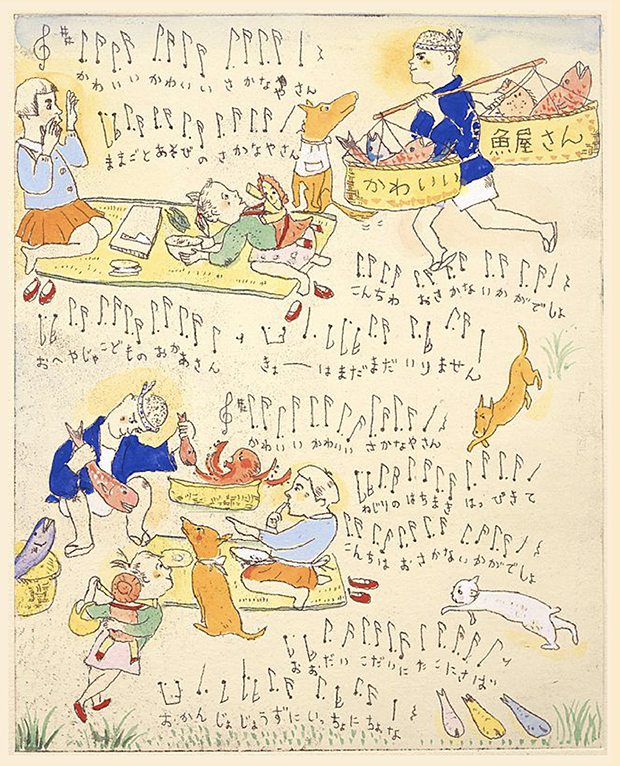 かわいい かわいい さかなやさん
ままごとあそびの さかなやさん
魚屋さん
かわいい
こんちわ おさかないかがでしょ
おへやじゃこどもの おかあさん
きょーはまだまだ いりません
かわいい かわいい さかなやさん
ねじりのはちまき はっぴきて
こんちは おさかないかがでしょ
おおだい こだいに たこにさば
おかんじょじょうずに いっちょにちょな